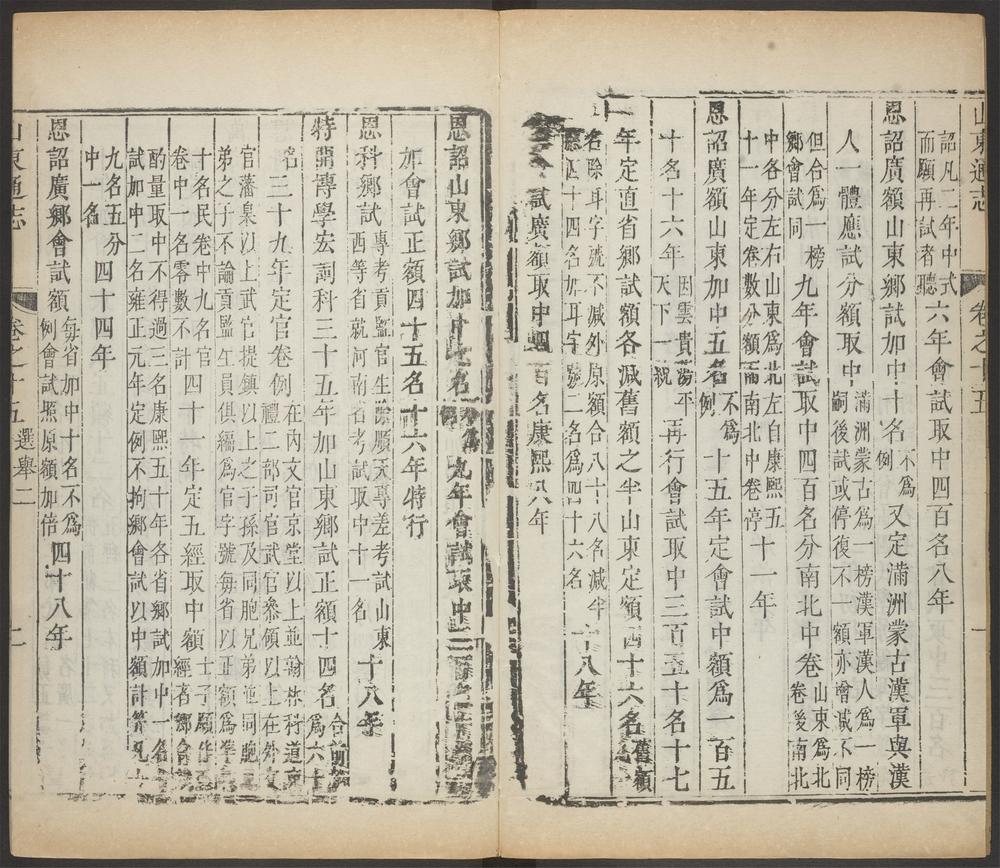 山東通志
卷之十五
詔凡二年中式
而願再試者聽
六年會試取中四百名八年
恩詔廣額山東鄉試加中十名
不為
例
又定滿洲蒙古漢軍與漢
人一體應試分額取中
滿洲蒙古為一榜漢軍漢人為一榜
嗣後試或停復不一額亦增減不同
但合為一榜
鄉會試同
九年會試取中四百名分南北中卷
山東為北
卷後南北
中各分左右山東為北左自康熙五
十一年定卷數分額而南北中卷停
十一年
恩詔廣額山東加中五名
不為
例
十五年定會試中額為一百五
十名十六年
因雲貴蕩平
天下一統
再行會試取中三百五十名十七
年定直省鄉試額各減舊額之半山東定額四十六名
舊額
名除耳字號不減外原額合八十八名減半
四十四名加耳字號二名為四十六名
十八年
試廣額取中四百名康熙八年
恩詔山東鄉試加中十名
九年會試取中
加會試正額四十五名十六年特行
恩科鄉試
專考貢監官生除順天專差考試山東
西等省就河南省考試取中十一名
十八年
特開博學宏詞科三十五年加山東鄉試正額十四名
合前
為六十
名
三十九年定官卷例
在內文官京堂以上並翰林科道
禮二部司官武官參領以上在外文
官藩臬以上武官提鎮以上之子孫及同胞兄弟並同胞兄
弟之子不論貢監生員俱編為官字號每省以正額為率
十名民卷中九名官
卷中一名零數不計
四十一年定五經取中額
士子
經者鄉會
酌量取中不得過三名康熙五十年各省鄉試加中一名
試加中二名雍正元年定例不拘鄉會試以中額計算
九名五分
中一名
四十四年
恩詔廣鄉會試額
每省加中十名不為
例會試照原額加倍
四十八年
山東通志
卷之十五
選舉二